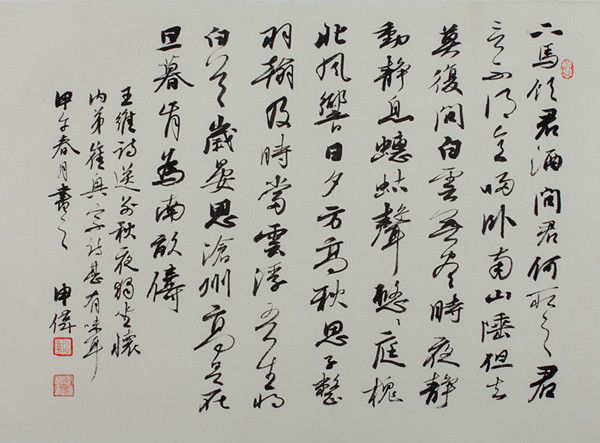 下馬飲君酒問君何所之君
言不得意歸臥南山陲但去
莫復問白雲無盡時夜靜
動靜息蟪蛄聲悠〻庭槐
北風響日夕方高秋思子整
羽翰及時當雲浮吾生將
白首歲晏思滄州高足在
旦暮肯為南畝儔
王維詩送別秋夜獨坐懷
內弟崔興宗詩甚有味耳
甲午春月書之 申偉